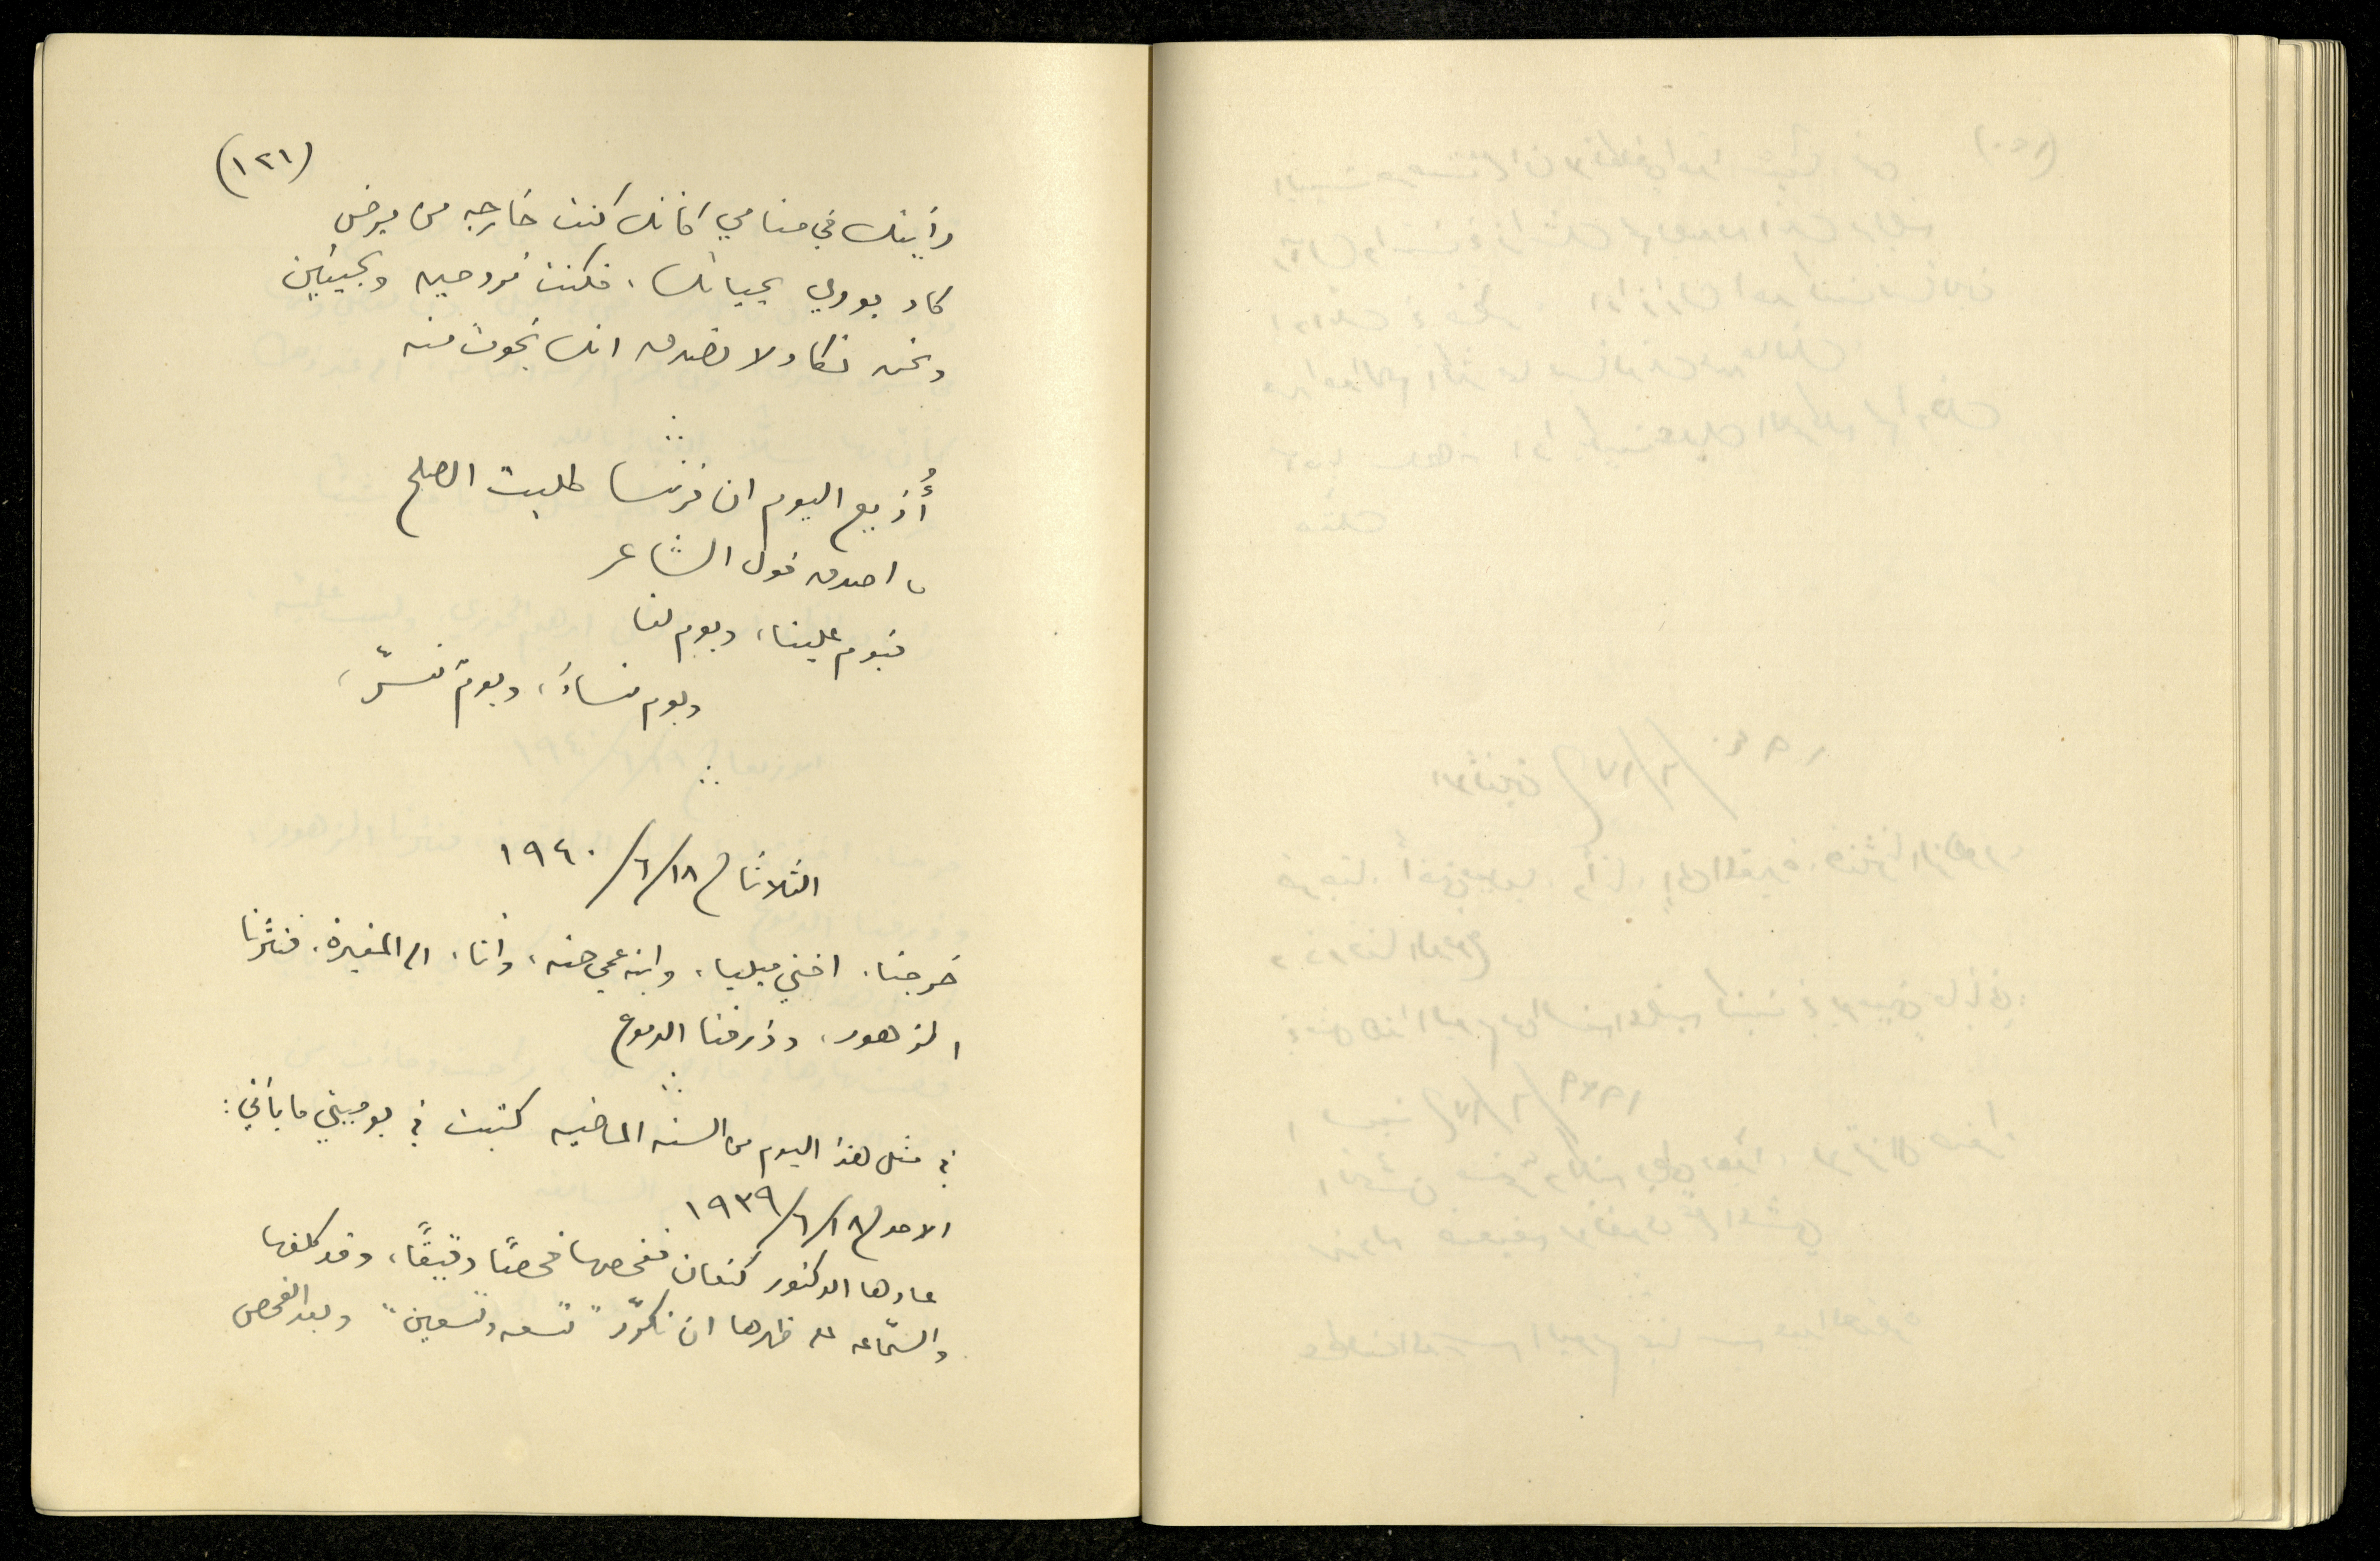 (١٢١)
رأيتك في منامي كأنك كنت خارجه من مرض
كاد يودي بحياتك، فكنت تروحين وتجيئين
ونحن نكاد لا نصدق انك نجوت منه
أُذيع اليوم ان فرنسا طلبت الصلح
ما اصدق قول الشاعر
فيوم علينا، ويوم لنا
ويوم نساءُ، ويوم نسرّ،
الثلاثاء ١٨/٦/١٩٤٠
خرجنا، اختي ميليا، وابنة عمي حنه، وأنا، الى المقبرة، فنثرنا
الزهور، وذرفنا الدموع
في مثل هذا اليوم من السنه الماضيه كتبت في يوميتي ما يأتي:
الاحد ١٨/٦/١٩٣٩
عادها الدكتور كنعان ففحصها فحصًا دقيقًا، وقد كلفها
والسمّاعه على ظهرها ان تكرّر "تسعه وتسعين" وبعد الفحص